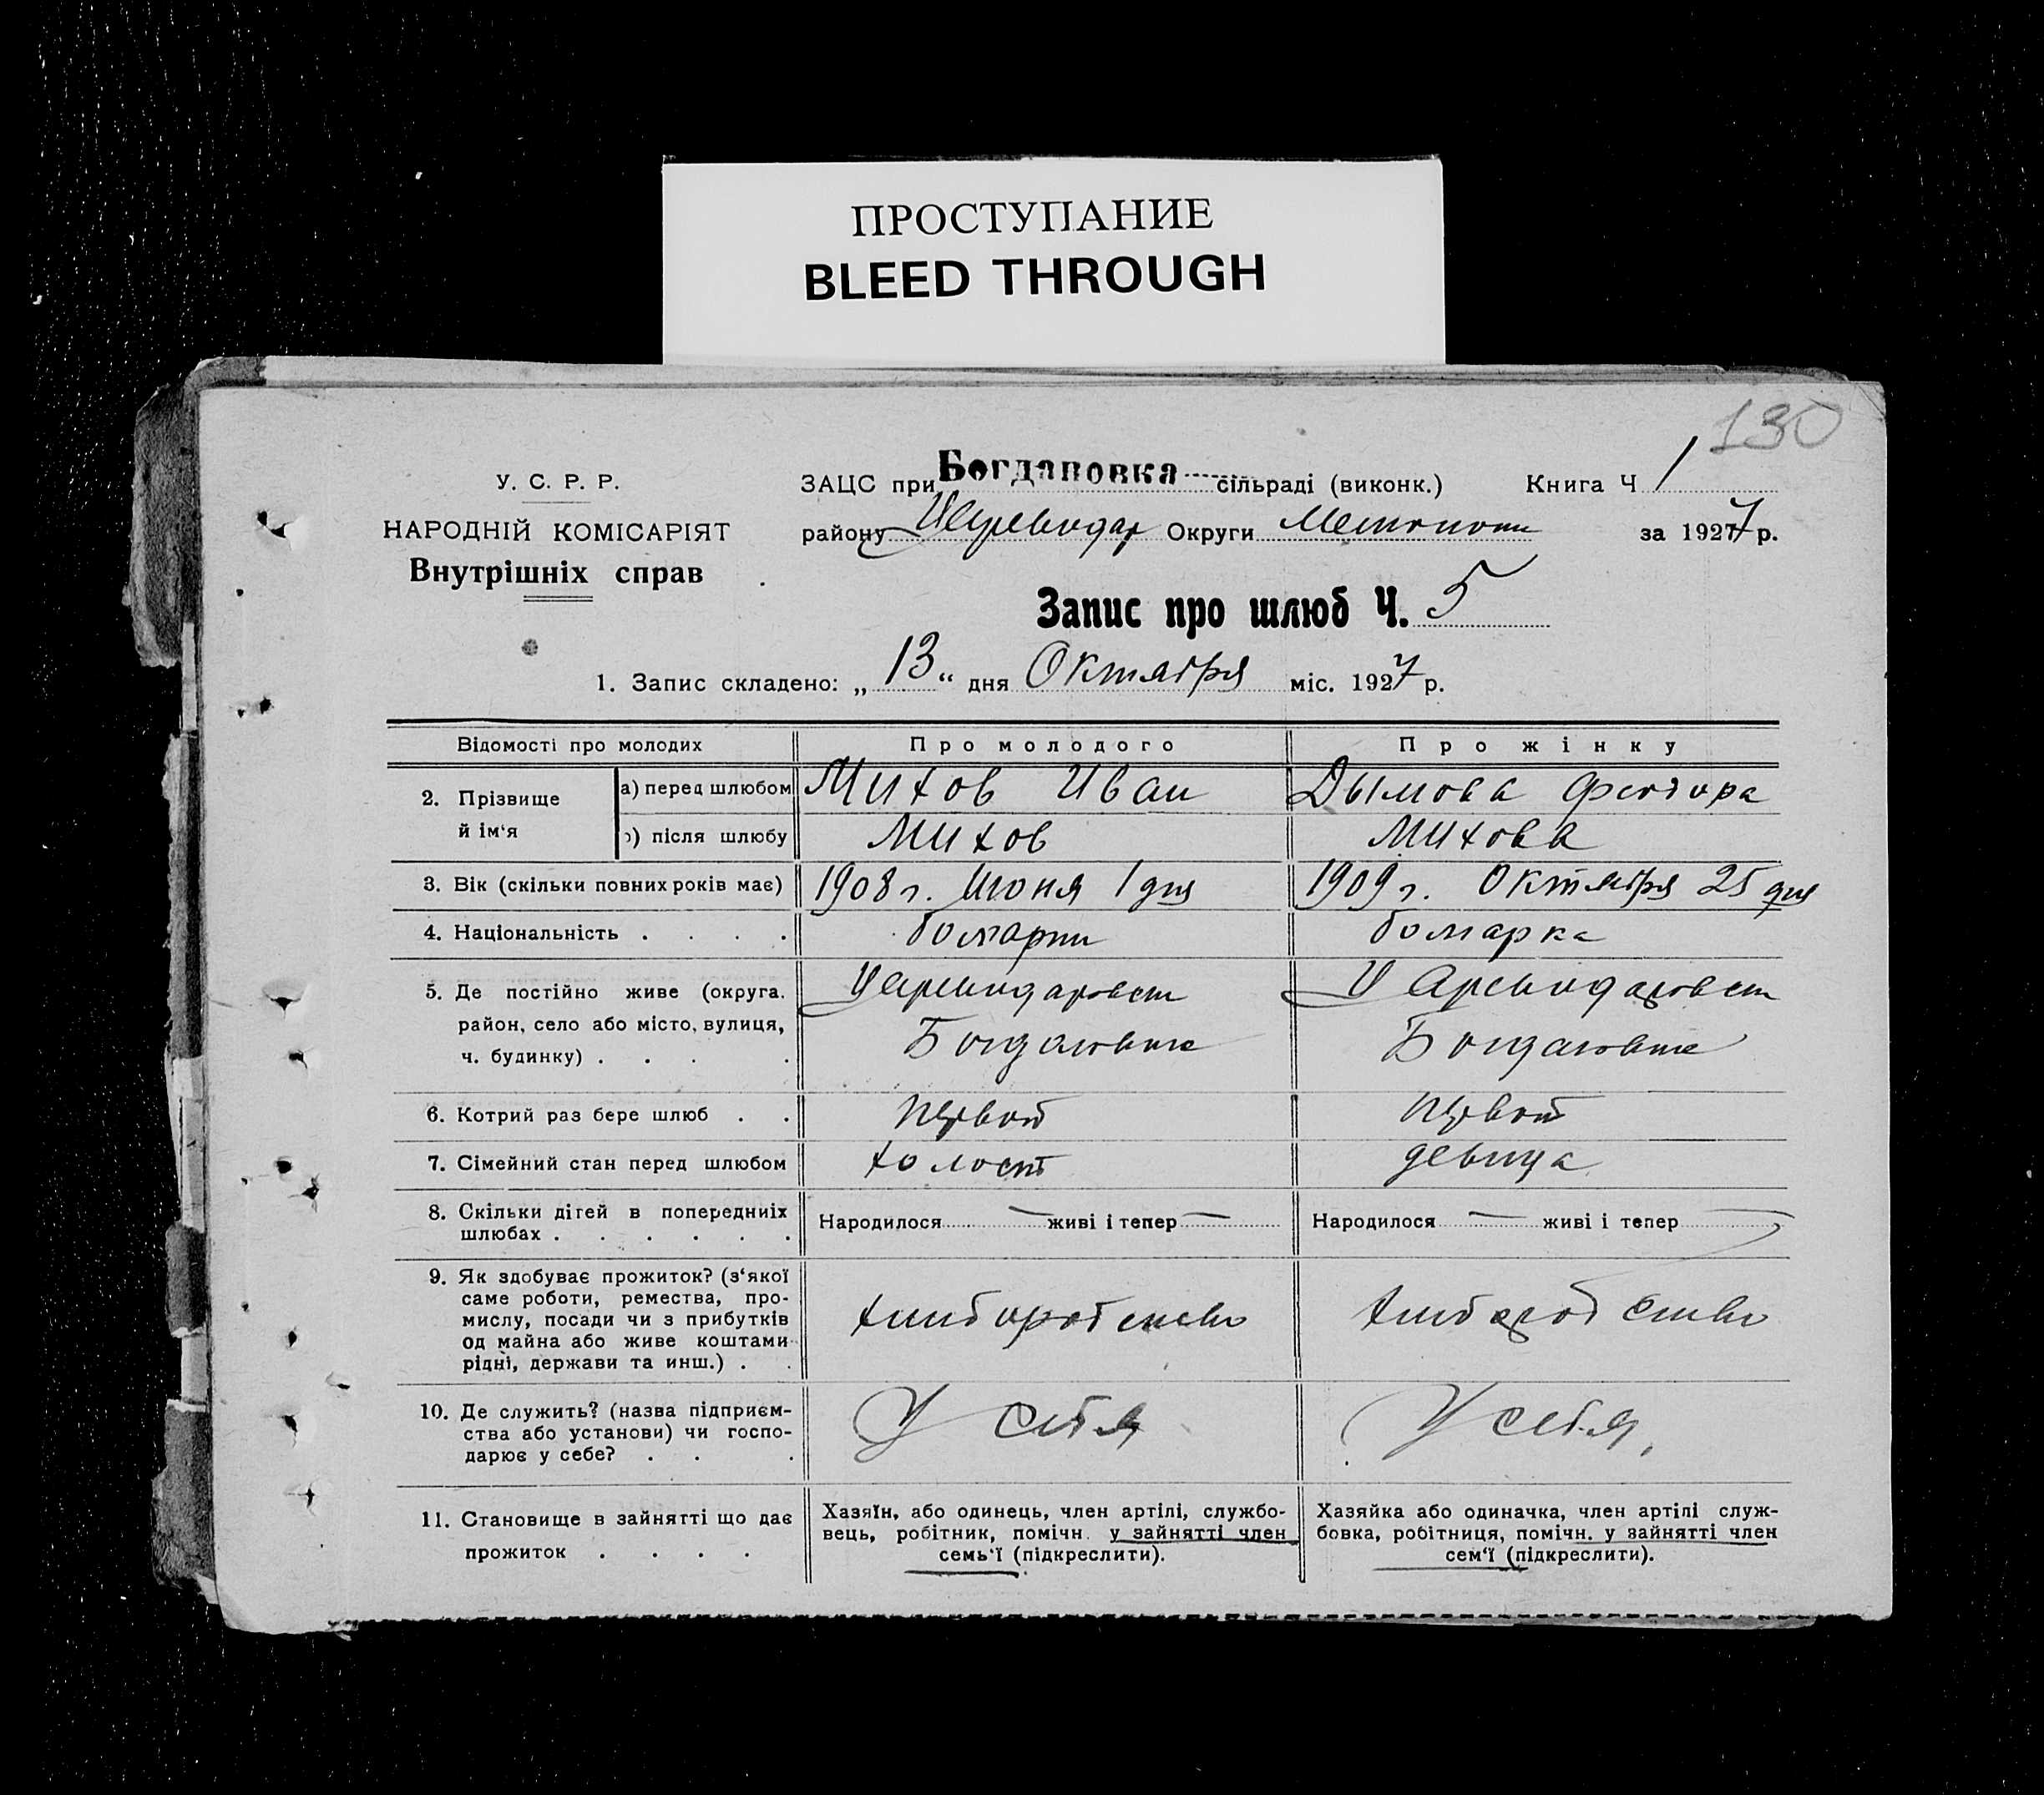 ПРОСТУПАНИЕ
BLEED THROUGH
130
У. С. Р. Р.
НАРОДНІЙ КОМІСАРІЯТ
Внутрішніх справ
ЗАЦС при Богдановка сільраді (виконк.) Книга Ч 1
району Цареводар Округи Мелитопол за 1927 р.
Запис про шлюб Ч. 5
1. Запис складено: „ 13 “ дня Октября міс. 1927 р.
Відомості про молодих Про молодого Про жінку
2. Прізвище й ім‘я а) перед шлюбом Михов Иван Дымова Феодора
б) після шлюбу Михов Михова
3. Вік (скільки повних років має) 1908 г. Июня 1 дня 1909 г. Октября 25 дня
4. Національність . . . . болгарин болгарка
5. Де постійно живе (округа, Цареводаровск Цареводаровск
район, село або місто, вулиця, Богдановке Богдановке
ч. будинку) . . . .
6. Котрий раз бере шлюб . . первой первой
7. Сімейний стан перед шлюбом холост девица
8. Скільки дітей в попередниіх
шлюбах . . . . . . Народилося — живі і тепер — Народилося — живі і тепер
9. Як здобуває прожиток? (з‘якої
саме роботи, ремества, про-
мислу, посади чи з прибутків хлиборобство хлибороб ство
од майна або живе коштами
рідні, держави та инш.) . .
10. Де служить? (назва підприєм-
ства або установи) чи госпо- У себя У себя,
дарює у себе? . . .
11. Становище в зайнятті що дає
прожиток . . . .
Хазяїн, або одинець, член артілі, службо-
вець, робітник, помічн. у зайнятті член
семь‘ї (підкреслити).
Хазяйка або одиначка, член артілі служ-
бовка, робітниця, помічн. у зайнятті член
сем‘ї (підкреслити).